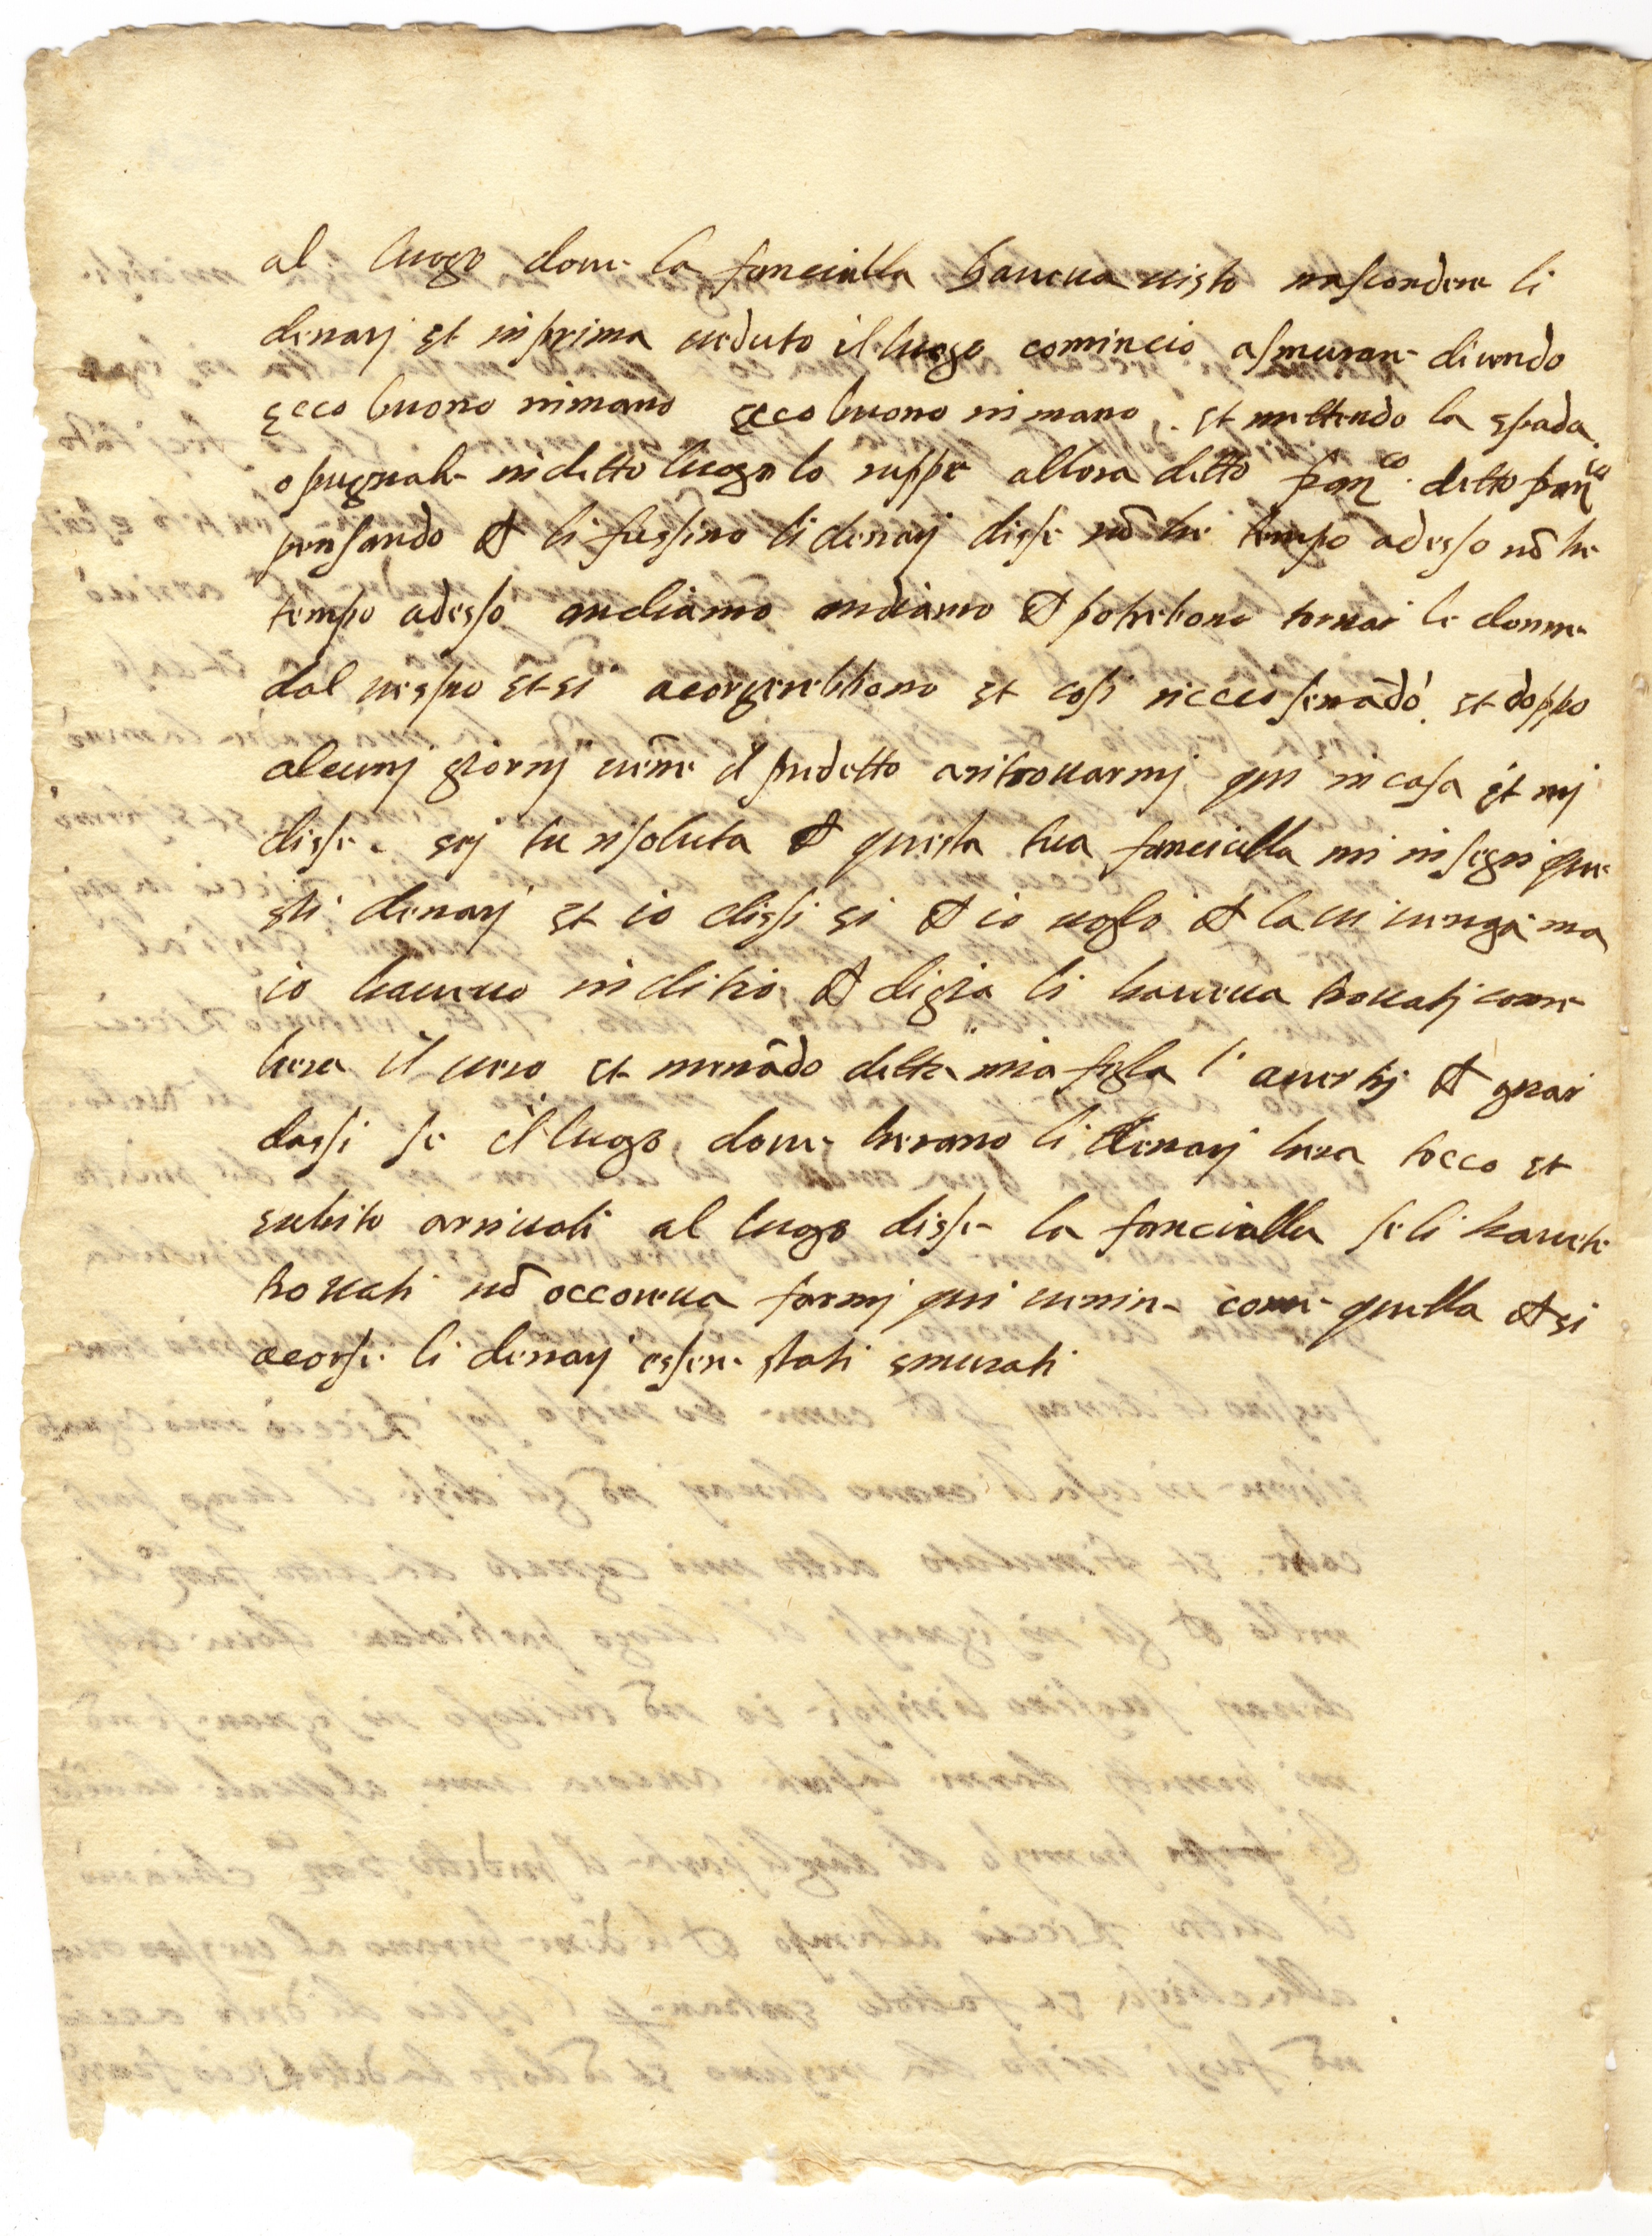 al luogo doue la fanciulla haueua uisto nascondere li
denarj et inprima ueduto il luogo comincio asmurare dicendo
ecco buono inmano ecco buono in mano, et mettendo la spada
o pugnale in ditto luogo lo ruppe allora ditto franco. detto franco
pensando che li fussino li denarj disse nõ he tempo adesso nõ he
tempo adesso andiamo andiamo che potrebono tornar le donne
dal uespro et si acorgerebbono et cosi riccio serrãdo et doppo
alcunj giornj uẽne il predetto aritrouarmj qui in casa et mj
disse. sej tu risoluta che questa tua fanciulla mi insegni que
sti denarj et io dissi si che io uoglo che la ui uenga ma
io haueuo inditio che digia li haueua trouatj come
hera il uero et menãdo detta mia figla l' auertij che guar
dassi se il luogo doue herano li denarj hera tocco et
subito arriuati al luogo disse la fanciulla se li hauete
trouati nõ occoreua farmj qui uenire come quella che si
acorse li denarj essere stati smurati